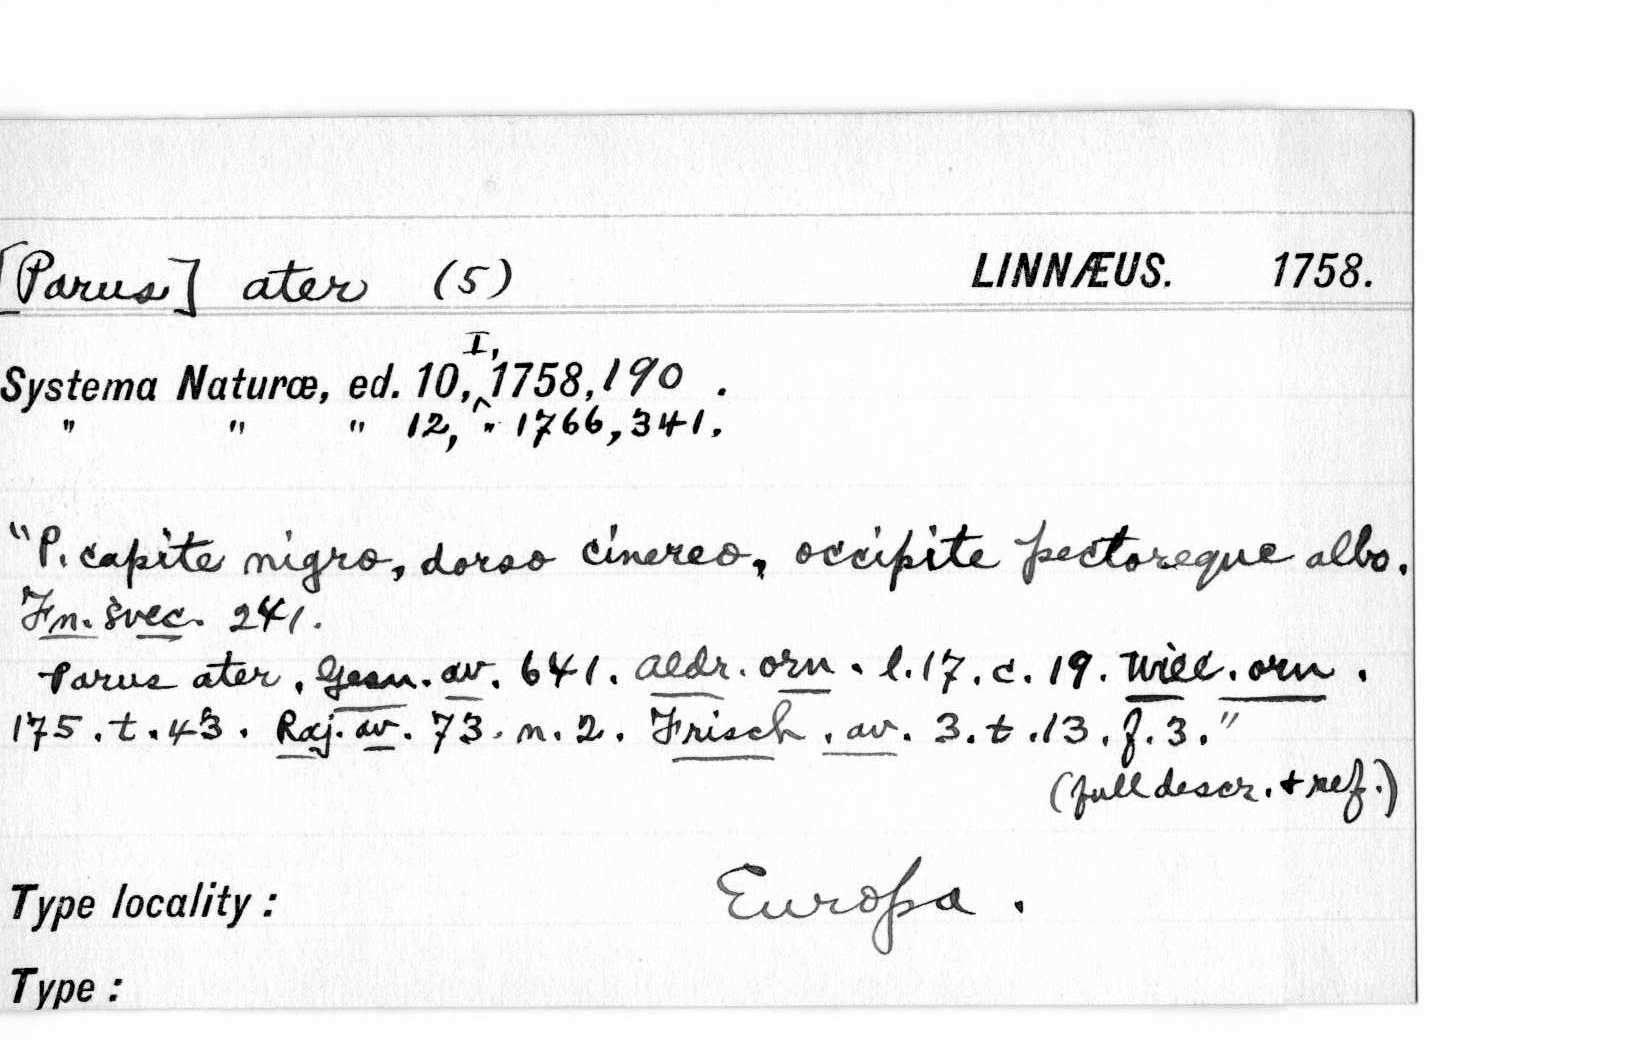 [Parus] ater (5) LINNÆUS. 1758.
I,
Systema Naturæ, ed. 10, ^ 1758, 190 .
" " " 12, " 1766, 341.
"P. capite nigro, dorso cinereo, occipite pectoreque albo.
Fn. svec. 241.
Parus ater. Gesn. av. 641. Aldr. orn. l. 17. c. 19. Will. orn.
175. t. 43. Raj. av. 73. n. 2. Frisch. av. 3. t. 13. f. 3."
(full descr. + ref.)
Type locality : Europa .
Type :